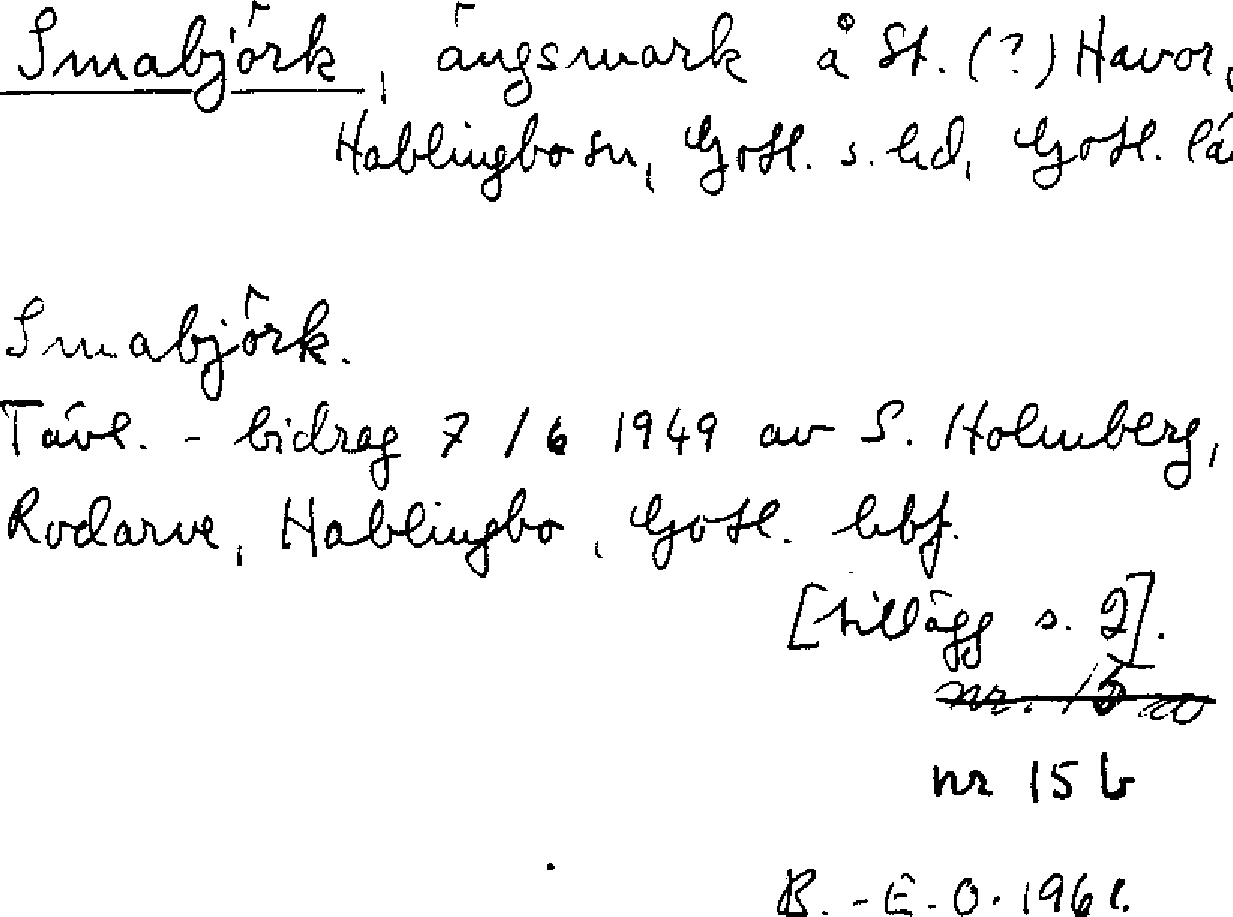 Smabjörk, ängsmark å St. (?) Havor,
Hablingbo sn, Gotl. s. hd, Gotl. lä
Smabjörk.
Tävl. - bidrag 7/6 1949 av S. Holmberg,
Rodarve, Hablingbo, Gotl. hbf.
[tillägg s. 2].
nr. 15 a
nr 15 b
B.-E. O. 1961.